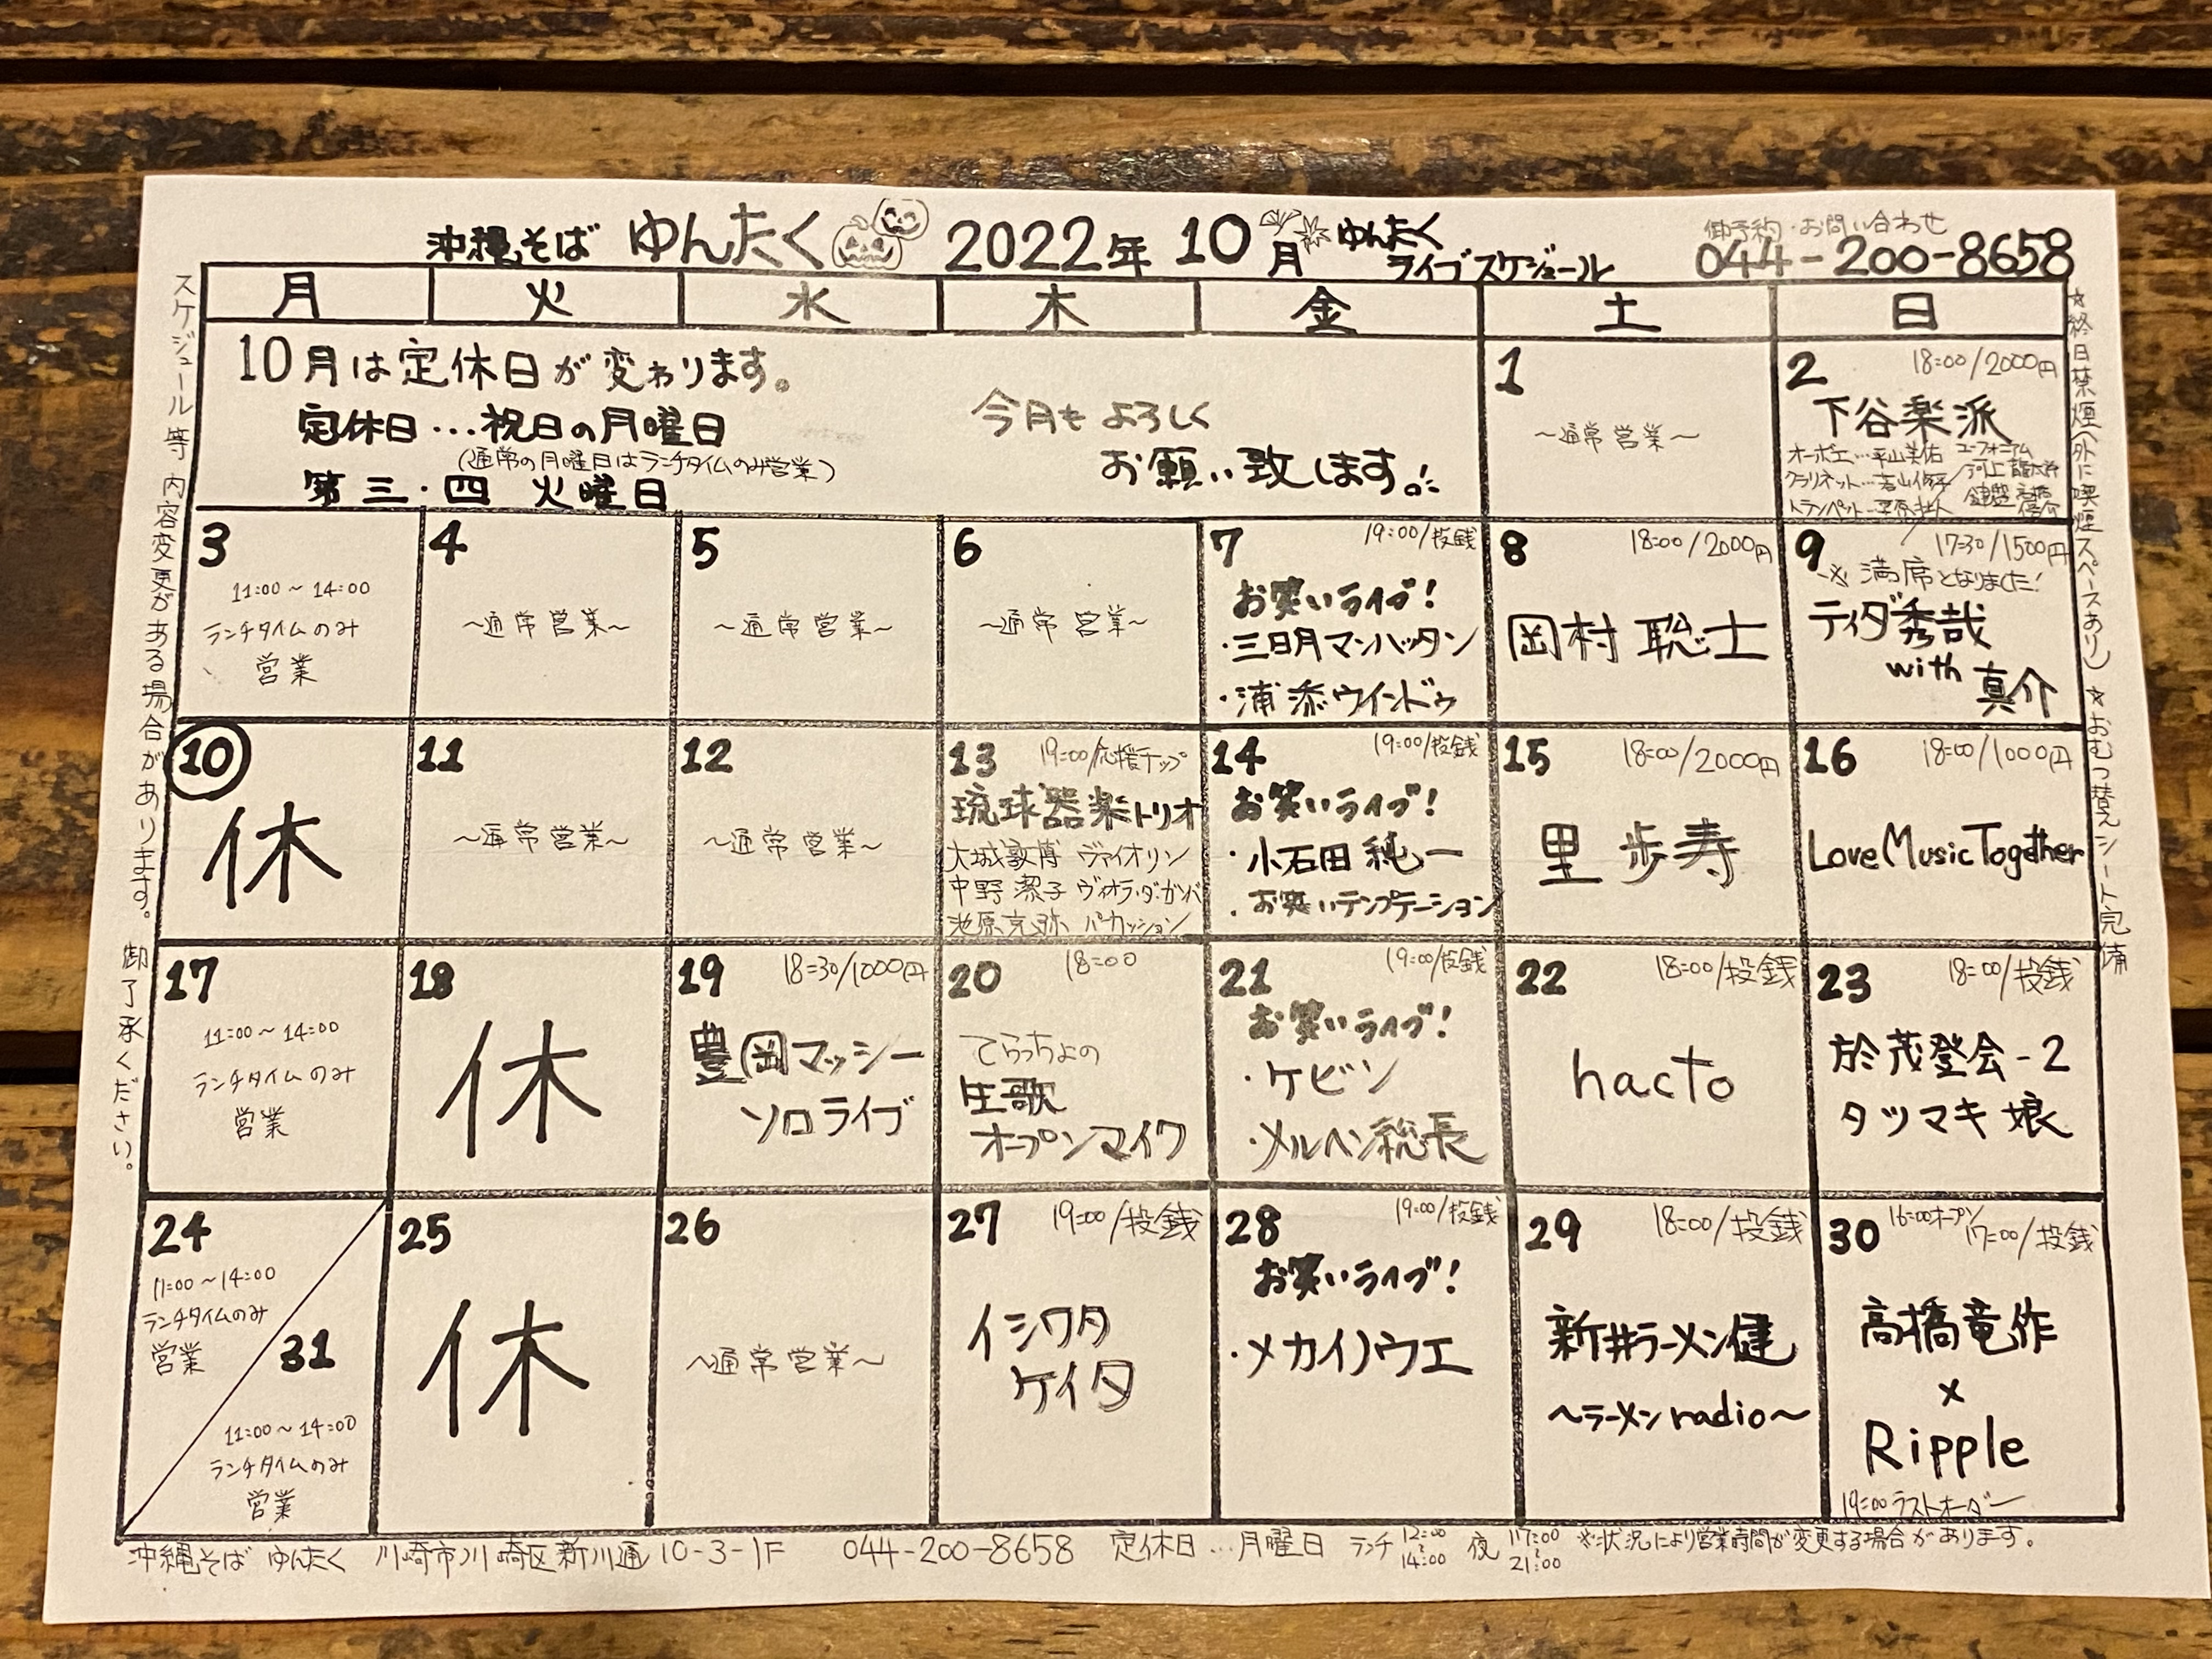 沖縄そば ゆんたく 2022年 10月 ゆんたく
ライブスケジュール
御予約・お問い合わせ
044-200-8658
月 火 水 木 金 土 日
10月は定休日が変わります。
定休日…祝日の月曜日
(通常の月曜日はランチタイムのみ営業)
第三・四 火曜日
今月もよろしく
お願い致します。
1
〜通常営業〜
2 18:00/2000円
下谷楽派
オーボエ…平山美佑
クラリネット…若山
トランペット…
ユーフォニアム
鍵盤 高橋
3
11:00〜14:00
ランチタイムのみ
営業
4
〜通常営業〜
5
〜通常営業〜
6
〜通常営業〜
7 19:00/投銭
お笑いライブ!
・三日月マンハッタン
・浦添ウインドゥ
8 18:00/2000円
岡村聡士
9 17:30/1500円
※満席となりました!
ティダ秀哉
with 真介
10
休
11
〜通常営業〜
12
〜通常営業〜
13 19:00/応援チップ
琉球器楽トリオ
大城敦博 ヴァイオリン
中野潔子 ヴィオラ・ダ・ガンバ
池原克弥 パーカッション
14 19:00/投銭
お笑いライブ!
・小石田純一
・お笑いテンプテーション
15 18:00/2000円
里歩寿
16 18:00/1000円
Love Music Together
17
11:00〜14:00
ランチタイムのみ
営業
18
休
19 18:30/1000円
豊岡マッシー
ソロライブ
20 18:00
てらっちょの
生歌
オープンマイク
21 19:00/投銭
お笑いライブ!
・ケビン
・メルヘン総長
22 18:00/投銭
hacto
23 18:00/投銭
於茂登会-2
タツマキ娘
24
11:00〜14:00
ランチタイムのみ
営業
31
11:00〜14:00
ランチタイムのみ
営業
25
休
26
〜通常営業〜
27 19:00/投銭
イシワタ
ケイタ
28 19:00/投銭
お笑いライブ!
・メカイノウエ
29 18:00/投銭
新井ラーメン健
〜ラーメンradio〜
30 16:00オープン/17:00/投銭
高橋竜作
×
Ripple
19:00ラストオーダー
スケジュール等 内容変更がある場合があります。御了承ください。
☆終日禁煙(外に喫煙スペースあり) ☆おむつ替えシート完備
沖縄そば ゆんたく 川崎市川崎区新川通10-3-1F 044-200-8658 定休日…月曜日 ランチ 12:00〜14:00 夜 17:00〜21:00 ※状況により営業時間が変更する場合があります。